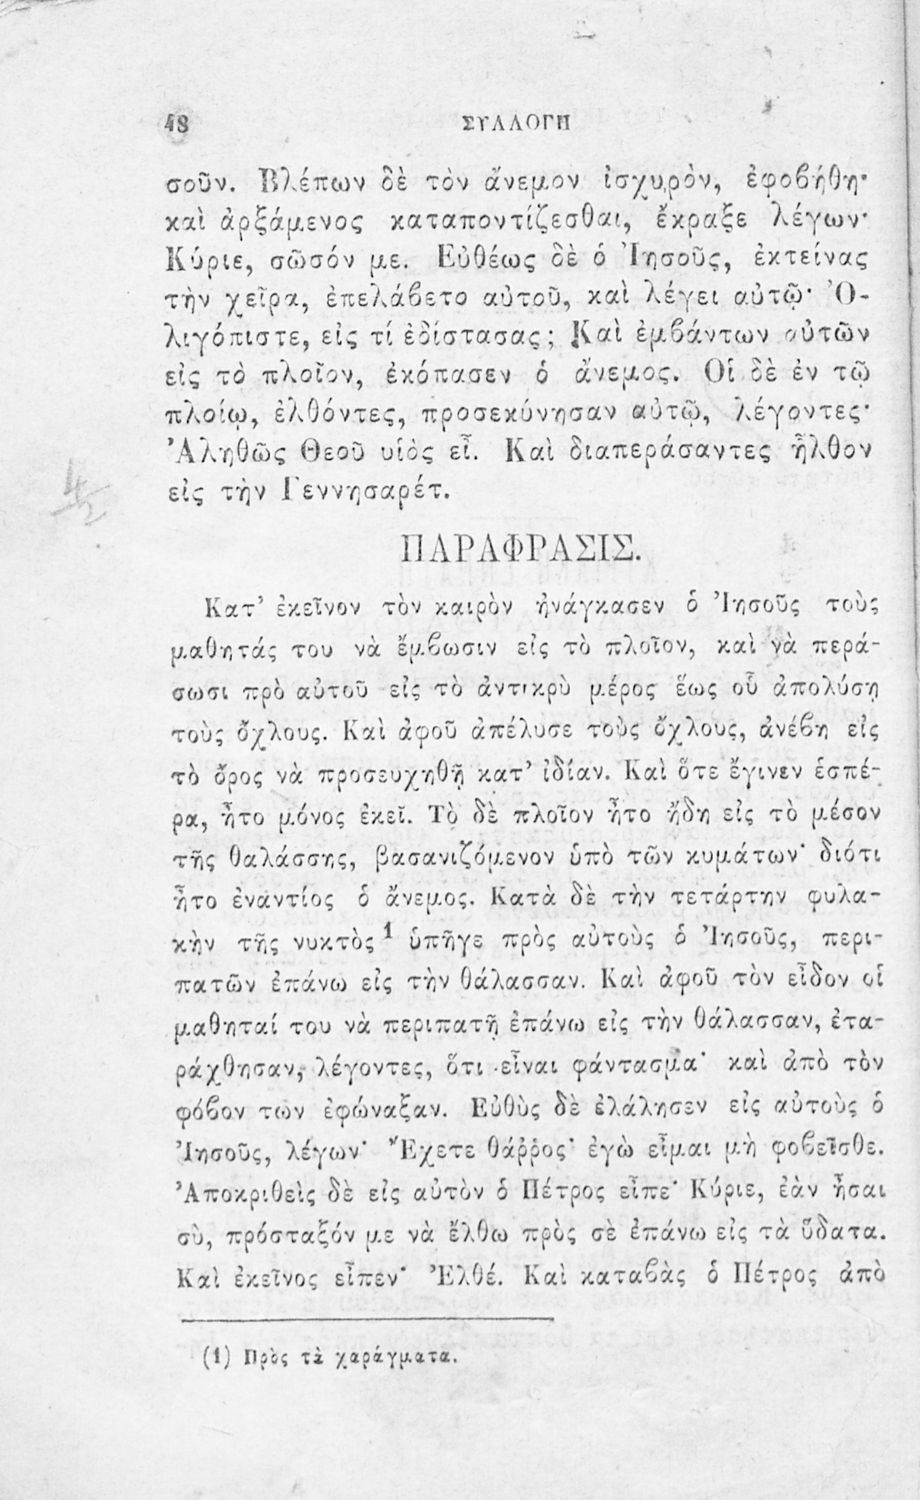 48 ΣΥΛΛΟΓΗ
σοῦν. Βλέπων δὲ τὸν ἄνεμον ἰσχυρὸν, ἐφοβήθη·
καὶ ἀρξάμενος καταποντίζεσθαι, ἔκραξε λέγων·
Κύριε, σῶσόν με. Εὐθέως δὲ ὁ Ἰησοῦς, ἐκτείνας
τὴν χεῖρα, ἐπελάβετο αὐτοῦ, καὶ λέγει αὐτῷ· Ὀ-
λιγόπιστε, εἰς τί ἐδίστασας; Καὶ ἐμβάντων αὐτῶν
εἰς τὸ πλοῖον, ἐκόπασεν ὁ ἄνεμος. Οἱ δὲ ἐν τῷ
πλοίῳ, ἐλθόντες, προσεκύνησαν αὐτῷ, λέγοντες·
Ἀληθῶς Θεοῦ υἱὸς εἶ. Καὶ διαπεράσαντες ἦλθον
εἰς τὴν Γεννησαρέτ.
ΠΑΡΑΦΡΑΣΙΣ.
Κατ’ ἐκεῖνον τὸν καιρὸν ἠνάγκασεν ὁ Ἰησοῦς τοὺς
μαθητάς του νὰ ἔμβωσιν εἰς τὸ πλοῖον, καὶ νὰ περά-
σωσι πρὸ αὐτοῦ εἰς τὸ ἀντικρὺ μέρος ἕως οὗ ἀπολύσῃ
τοὺς ὄχλους. Καὶ ἀφοῦ ἀπέλυσε τοὺς ὄχλους, ἀνέβη εἰς
τὸ ὄρος νὰ προσευχηθῇ κατ’ ἰδίαν. Καὶ ὅτε ἔγινεν ἑσπέ-
ρα, ἦτο μόνος ἐκεῖ. Τὸ δὲ πλοῖον ἦτο ἤδη εἰς τὸ μέσον
τῆς θαλάσσης, βασανιζόμενον ὑπὸ τῶν κυμάτων· διότι
ἦτο ἐναντίος ὁ ἄνεμος. Κατὰ δὲ τὴν τετάρτην φυλα-
κὴν τῆς νυκτὸς 1 ὑπῆγε πρὸς αὐτοὺς ὁ Ἰησοῦς, περι-
πατῶν ἐπάνω εἰς τὴν θάλασσαν. Καὶ ἀφοῦ τὸν εἶδον οἱ
μαθηταί του νὰ περιπατῇ ἐπάνω εἰς τὴν θάλασσαν, ἐτα-
ράχθησαν, λέγοντες, ὅτι εἶναι φάντασμα· καὶ ἀπὸ τὸν
φόβον των ἐφώναξαν. Εὐθὺς δὲ ἐλάλησεν εἰς αὐτοὺς ὁ
Ἰησοῦς, λέγων· Ἔχετε θάῤῥος· ἐγὼ εἶμαι μὴ φοβεῖσθε.
Ἀποκριθεὶς δὲ εἰς αὐτὸν ὁ Πέτρος εἶπε· Κύριε, ἐὰν ἦσαι
σὺ, πρόσταξόν με νὰ ἔλθω πρὸς σὲ ἐπάνω εἰς τὰ ὕδατα.
Καὶ ἐκεῖνος εἶπεν· Ἐλθέ. Καὶ καταβὰς ὁ Πέτρος ἀπὸ
(1) Πρὸς τὰ χαράγματα.